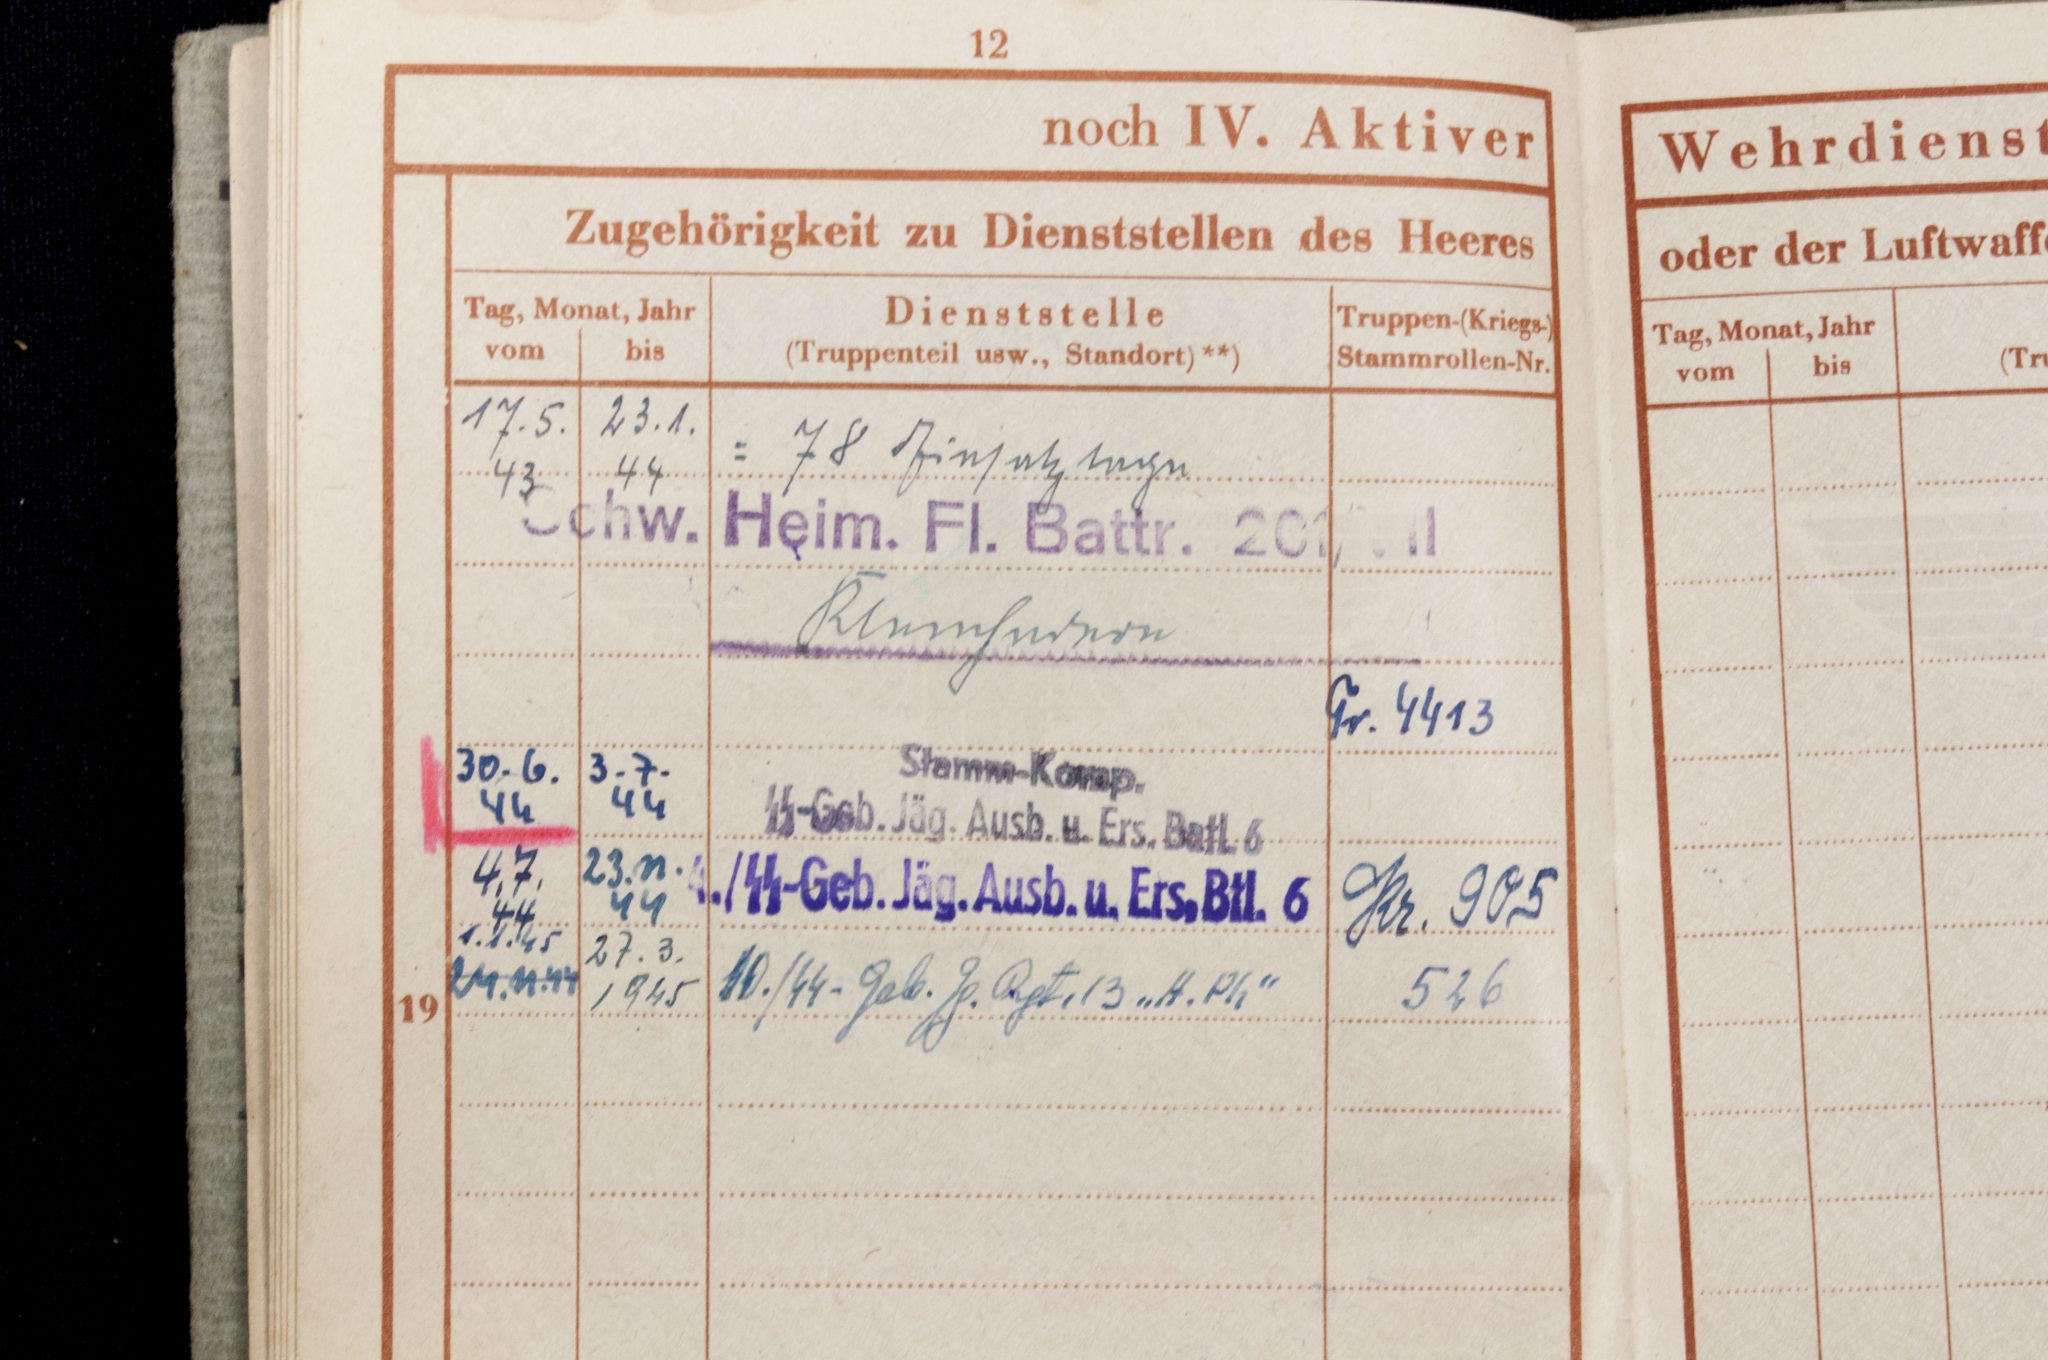 12
noch IV. Aktiver
Zugehörigkeit zu Dienststellen des Heeres
Tag, Monat, Jahr
vom bis
Dienststelle
(Truppenteil usw., Standort)**)
Truppen-(Kriegs-)
Stammrollen-Nr.
17.5. 23.1. = 78 Einsatztage
43 44
Schw. Heim. Fl. Battr.
Tr. 4413
30.6. 3.7. Stamm-Komp.
44 44 SS-Geb. Jäg. Ausb. u. Ers. Batl. 6
4.7. 23.11. ./SS-Geb. Jäg. Ausb. u. Ers. Btl. 6 Kr. 905
44 44
1.1.45 27.3.
24.11.44 1945 10./SS-Geb. Jg. Rgt. 13 „A. Ph" 526
19
Wehrdienst
oder der Luftwaffe
Tag, Monat, Jahr
vom bis
(Tru